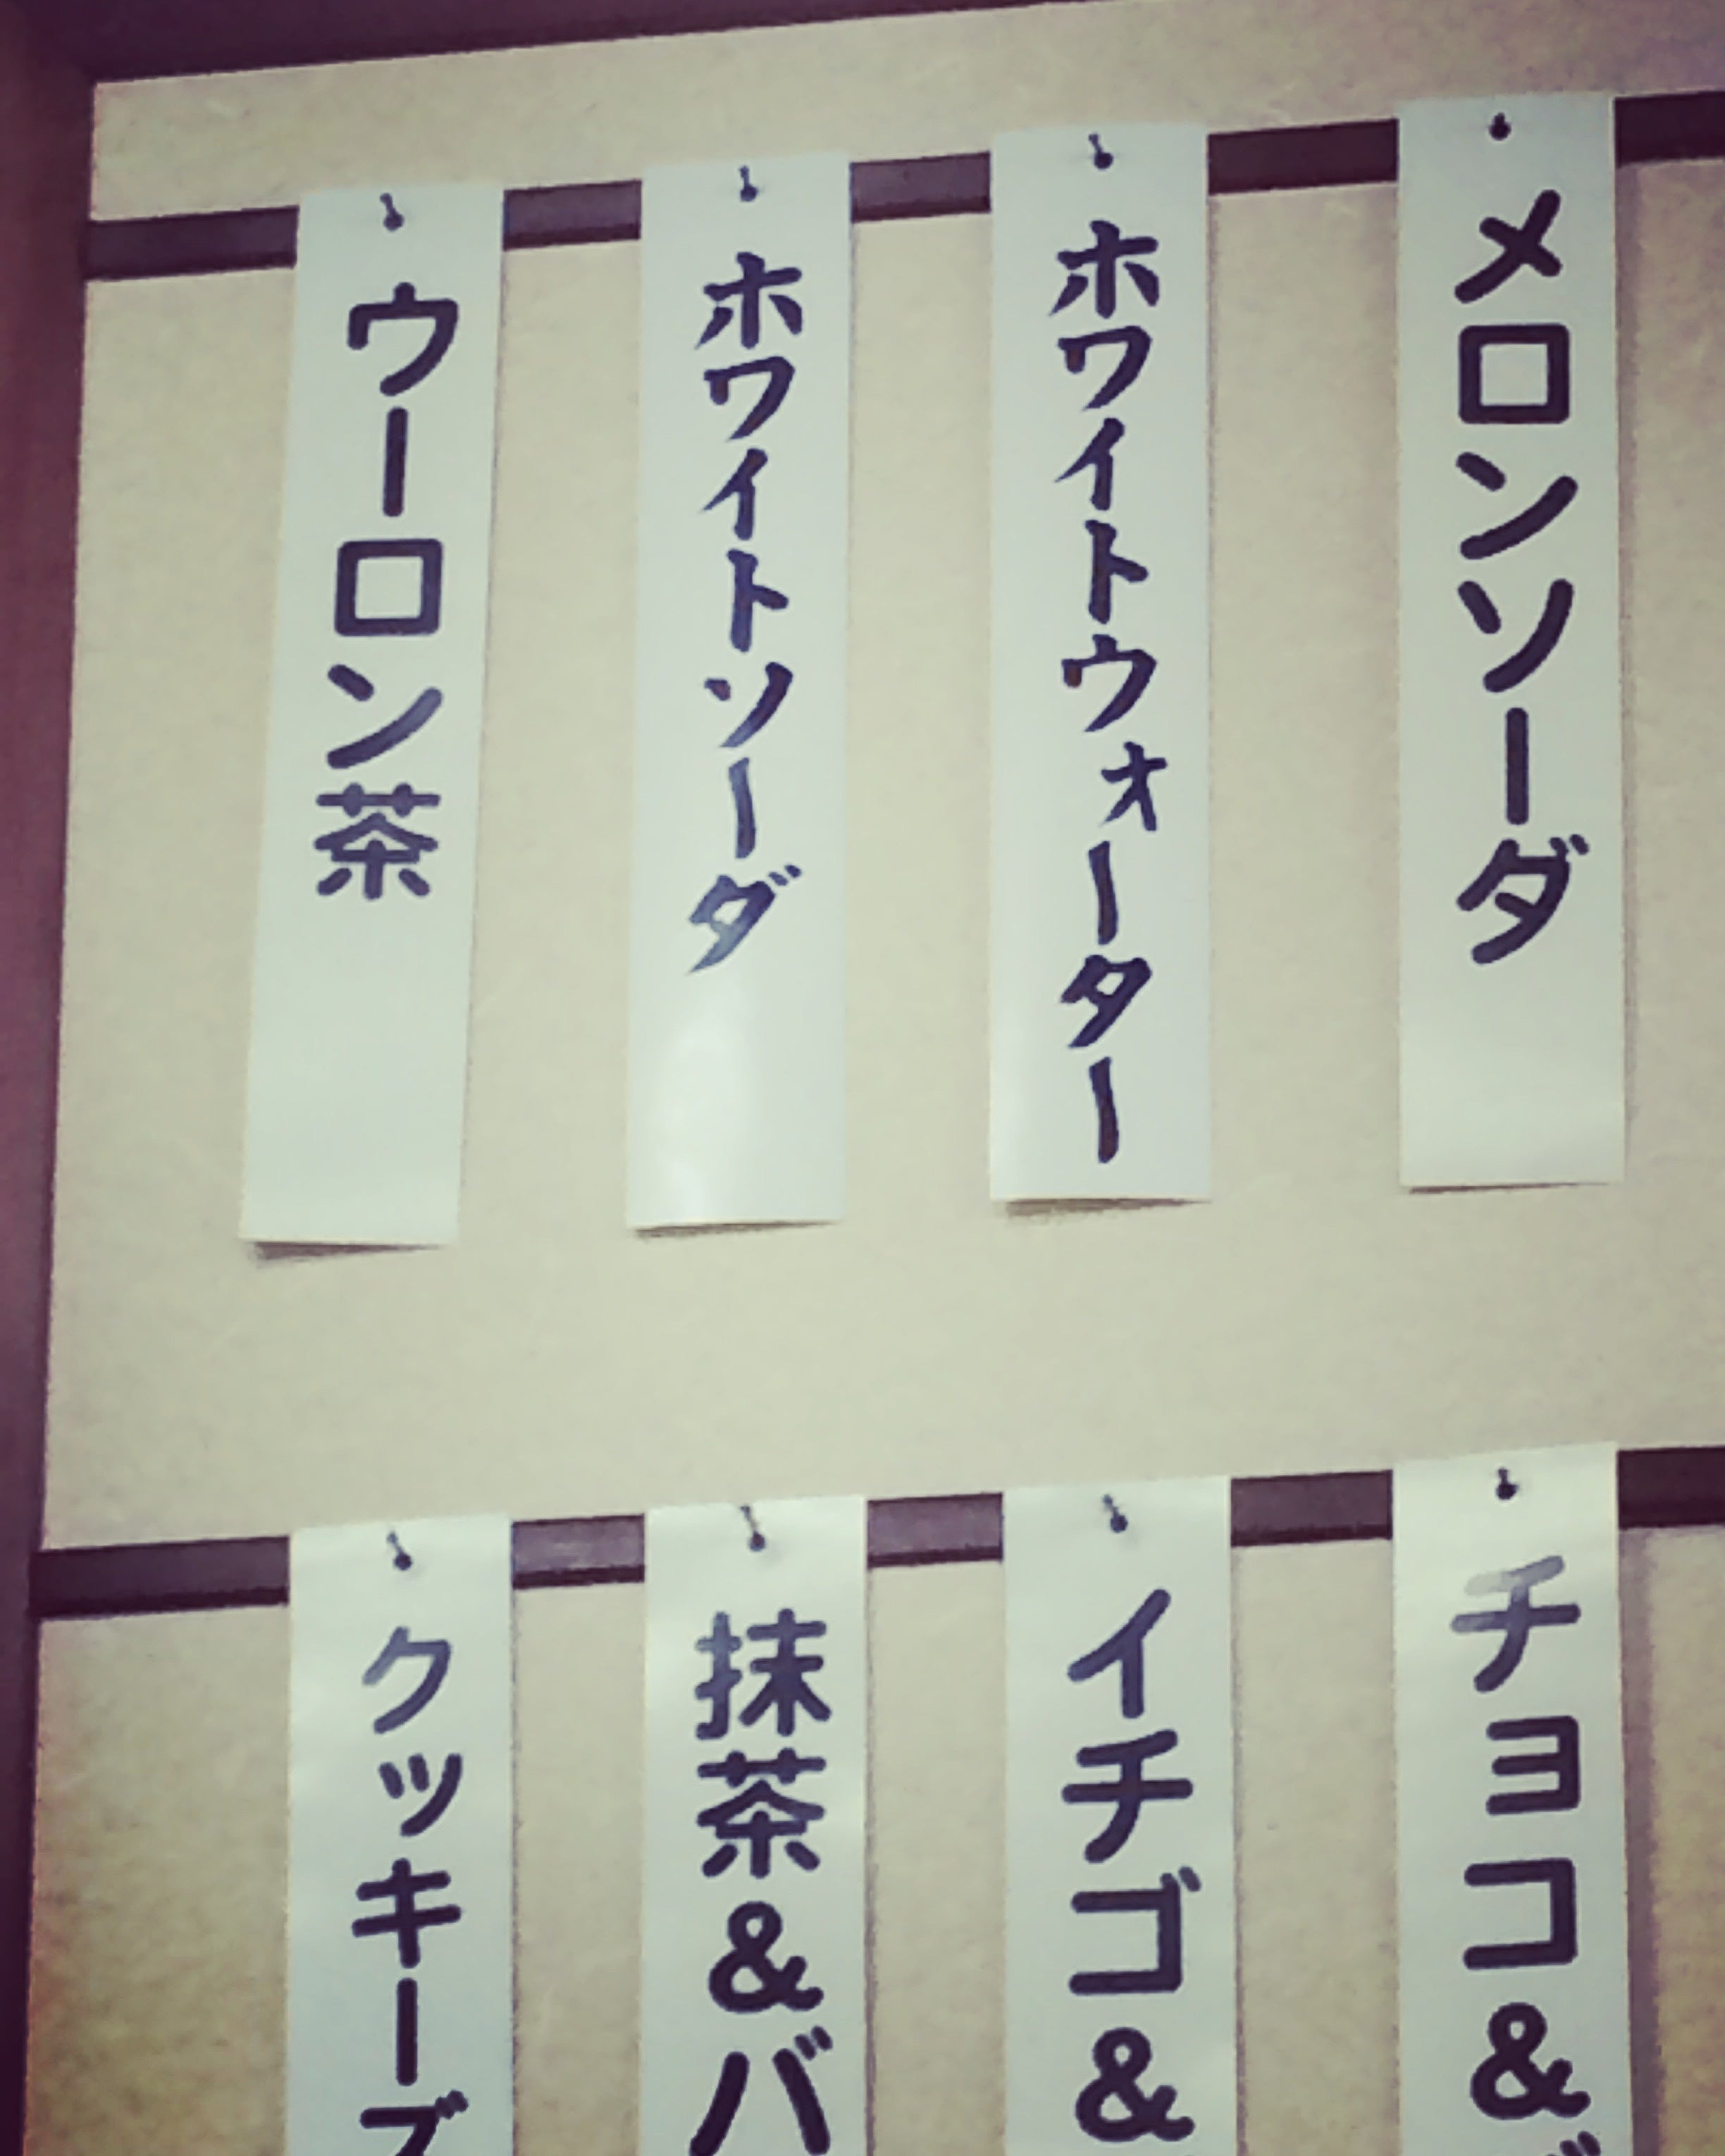 メロンソーダ
ホワイトウォーター
ホワイトソーダ
ウーロン茶
チョコ&
イチゴ&
抹茶&バ
クッキーズ